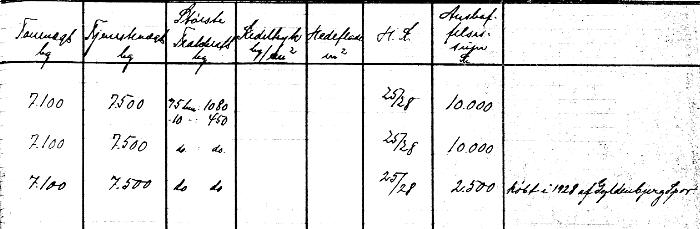 Tomvægt kg | Tjenestevægt kg | Største Trækkraft kg | Kedeltryk kg/cm² | Hedeflade m² | H.K. | Anskaffelsessum Kr.
7.100 | 7.500 | 7,5 km 1080 | 25/28 | 10.000
10 - 450
7.100 | 7.500 | do do | 25/28 | 10.000
7.100 | 7.500 | do do | 25/28 | 2.500 | købt i 1928 af